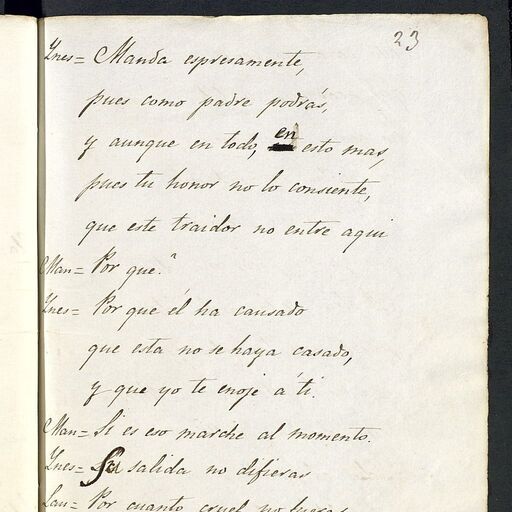 23
Ynes = Manda espresamente,
pues como padre podrás,
y aunque en todo, en esto mas,
pues tu honor no lo consiente,
que este traidor no entre aqui
Man = Por que.
Ynes = Por que él ha causado
que esta no se haya casado,
y que yo te enoje á ti.
Man = Si es eso marche al momento.
Ynes = Su salida no difieras
Lau = Por cuanto cruel no fueras